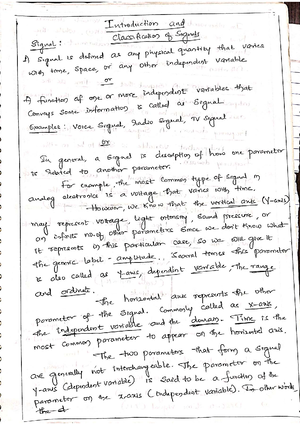 Introduction and
Classification of Signals
Signal :
A signal is defined as any physical quantity that varies
with time, space, or any other independent variable
or
A function of one or more independent variables that
Conveys some information is called as signal
Examples : Voice Signal, Radio Signal, TV Signal
or
In general, a signal is description of how one parameter
is related to another parameter.
For example, the most common type of signal in
analog electronics is a voltage that varies with time.
However, we know that the vertical axis (Y-axis)
may represent voltage, light intensity, sound pressure, or
an infinite no. of other parameters. Since we don't know what
it represents in this particular case, so we will give it
the generic label - amplitude. Several times this parameter
is also called as Y-axis, dependent variable, the range,
and ordinate.
The horizontal axis represents the other
parameter of the signal. Commonly called as x-axis,
the independent variable and the domain. Time is the
most common parameter to appear on the horizontal axis.
The two parameters that form a signal
are generally not interchangeable. The parameter on the
Y-axis (dependent variable) is said to be a function of the
parameter on the x-axis (independent variable). In other words,
the